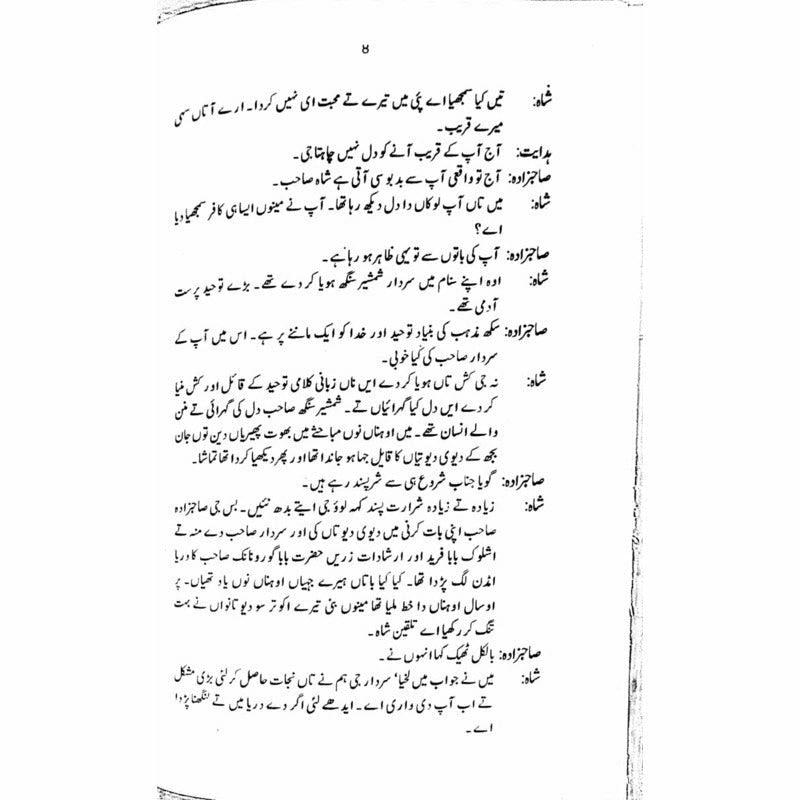 ۸
شاہ: تیں کیا سمجھیا اے پئی میں تیرے تے محبت ای نہیں کردا۔ ارے آ تاں سہی
میرے قریب۔
ہدایت: آج آپ کے قریب آنے کو دل نہیں چاہتا جی۔
صاحبزادہ: آج تو واقعی آپ سے بدبو سی آتی ہے شاہ صاحب۔
شاہ: میں تاں آپ لوکاں دا دل دیکھ رہا تھا۔ آپ نے مینوں ایسا ہی کافر سمجھیا دیا
اے؟
صاحبزادہ: آپ کی باتوں سے تو یہی ظاہر ہو رہا ہے۔
شاہ: اوہ اپنے سنام میں سردار شمشیر سنگھ ہویا کر دے تھے۔ بڑے توحید پرست
آدمی تھے۔
صاحبزادہ: سکھ مذہب کی بنیاد توحید اور خدا کو ایک ماننے پر ہے۔ اس میں آپ کے
سردار صاحب کی کیا خوبی۔
شاہ: نہ جی کش تاں ہویا کر دے ایں ناں زبانی کلامی توحید کے قائل اور کش منیا
کر دے ایں دل کیا گہرائیاں تے۔ شمشیر سنگھ صاحب دل کی گہرائی تے منن
والے انسان تھے۔ میں اوہناں نوں مباحثے میں بھوت پھیریاں دین توں جان
بجھ کے دیوی دیوتیاں کا قایل جہا ہو جاندا تھا اور پھر دیکھیا کردا تھا تماشا۔
صاحبزادہ: گویا جناب شروع ہی سے شرپسند رہے ہیں۔
شاہ: زیادہ تے زیادہ شرارت پسند کہہ لوؤ جی ایتے بدھ نئیں۔ بس جی صاحبزادہ
صاحب اپنی بات کرنی میں دیوی دیوتاں کی اور سردار صاحب دے منہ تے
اشلوک بابا فرید اور ارشادات زریں حضرت بابا گورو نانک صاحب کا دریا
امڈن لگ پڑدا تھا۔ کیا کیا باتاں ہیرے جہیاں اوہناں نوں یاد تھیاں۔ پر
اوسال اوہناں دا خط ملیا تھا مینوں بنی تیرے اکوتر سو دیوتانواں نے بہت
تنگ کر رکھیا اے تلقین شاہ۔
صاحبزادہ: بالکل ٹھیک کہا انہوں نے۔
شاہ: میں نے جواب میں لخیا' سردار جی ہم نے تاں نجات حاصل کر لئی بڑی مشکل
تے اب آپ دی واری اے۔ ایدھے لئی اگر دے دریا میں تے لنگھنا پڑدا
اے۔